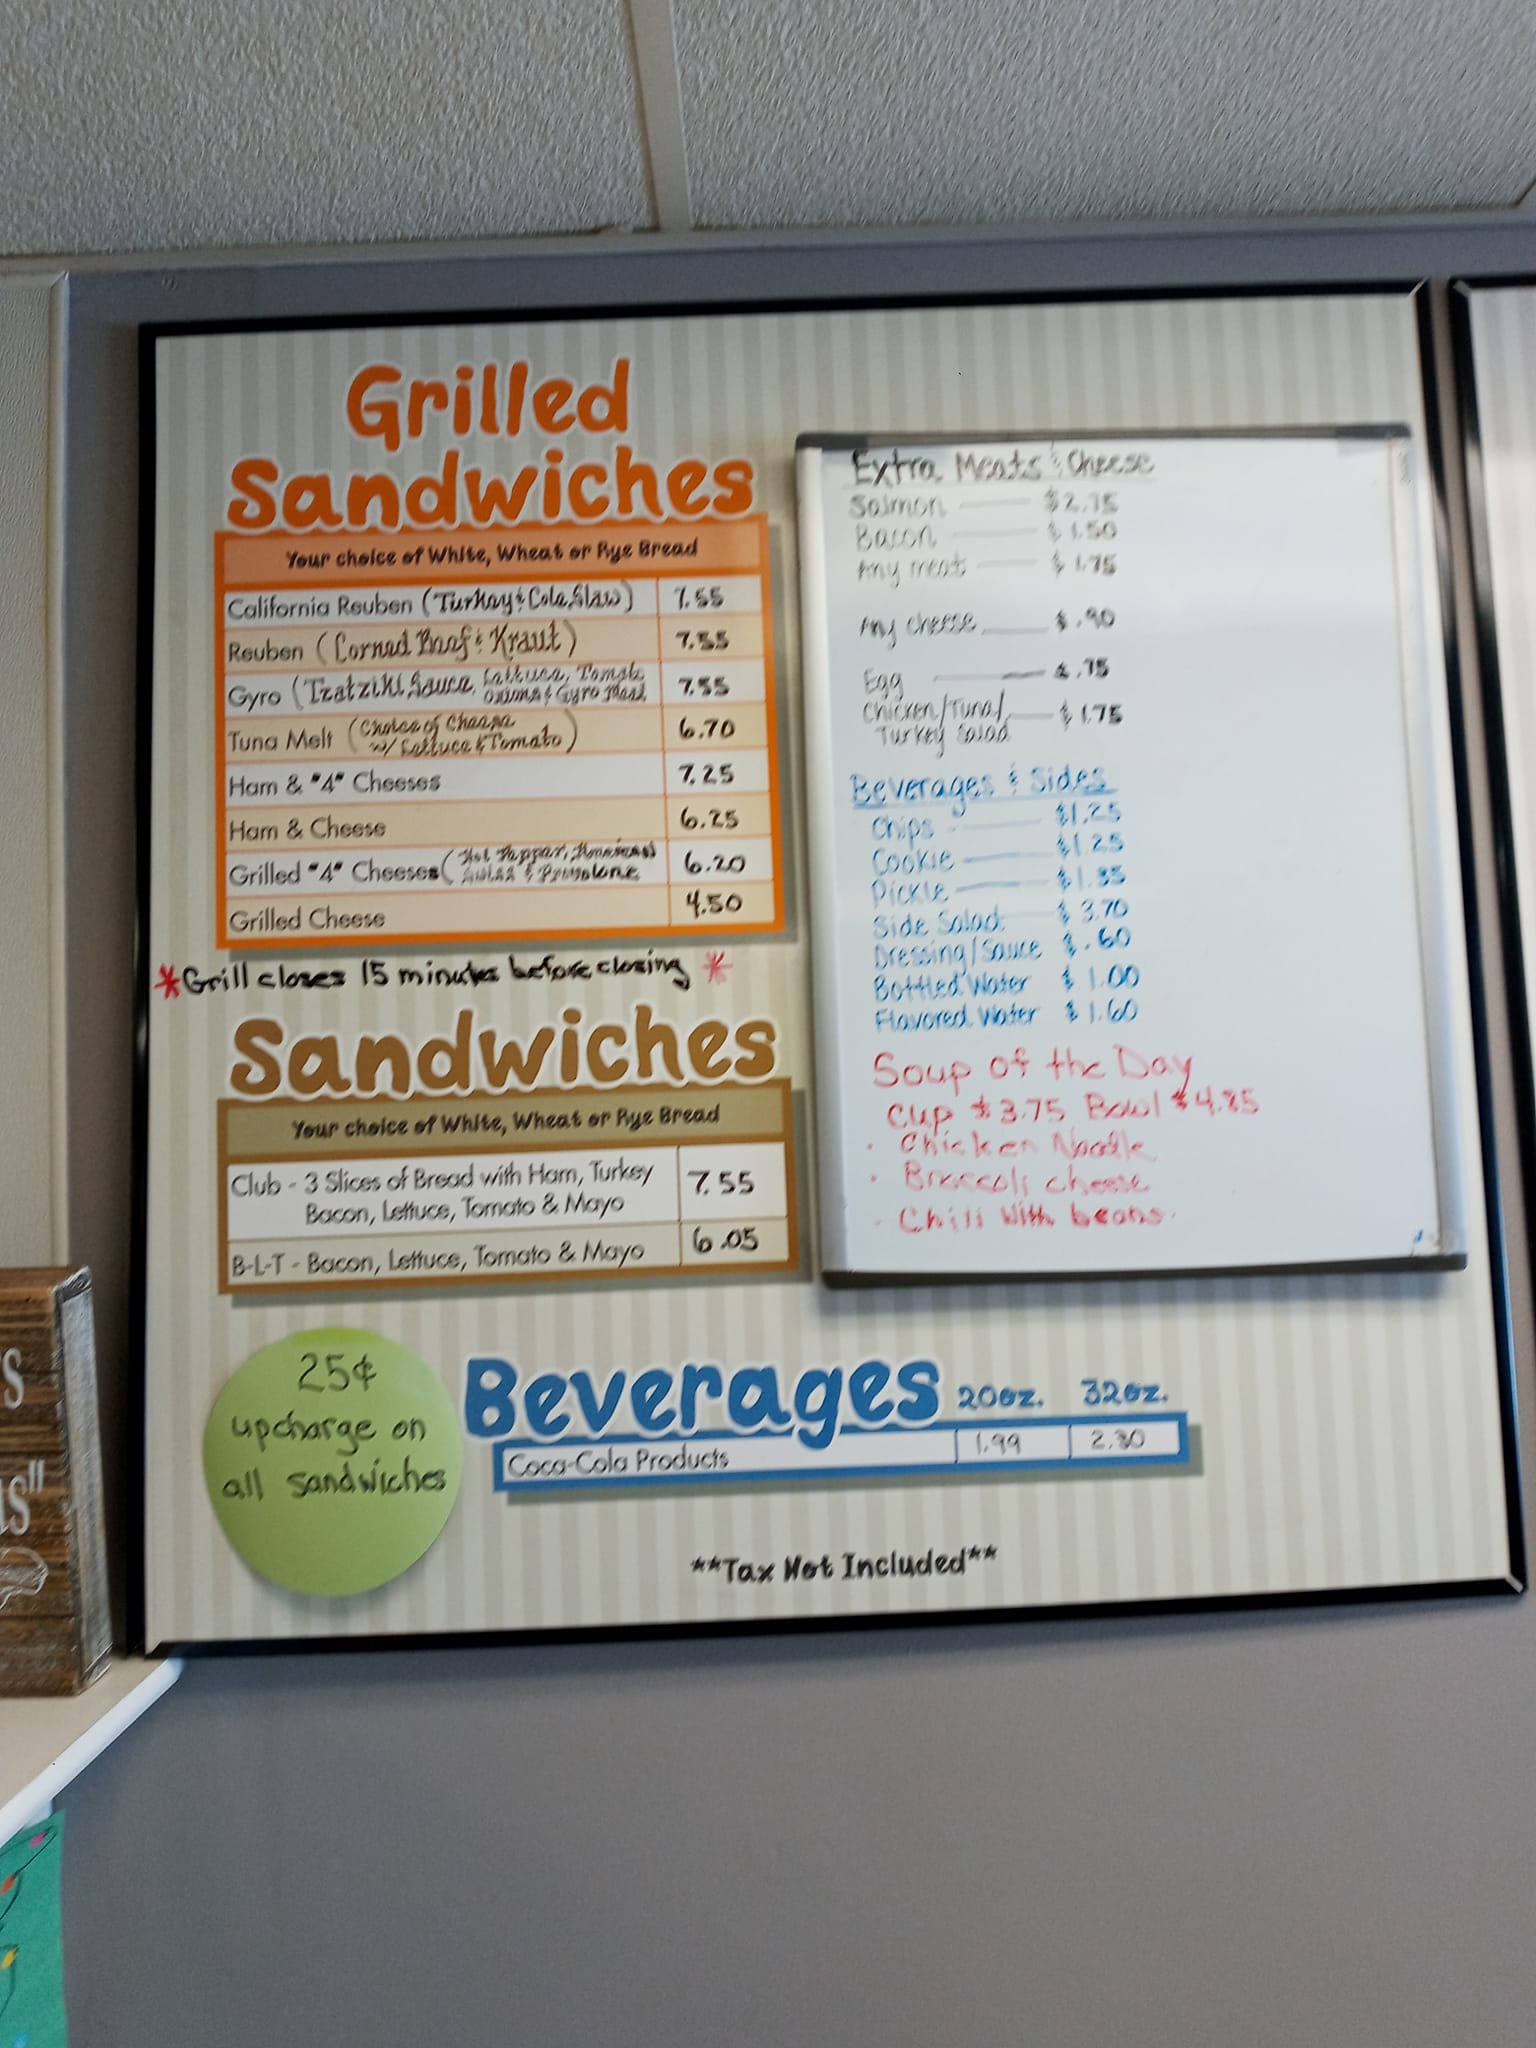 Grilled
Sandwiches
Your choice of White, Wheat or Rye Bread
California Reuben (Turkey & Cole Slaw) 7.55
Reuben (Corned Beef & Kraut) 7.55
Gyro (Tzatziki Sauce, Lettuce, Tomato, 7.55
Onions & Gyro Meat
Tuna Melt (Choice of Cheese 6.70
w/ Lettuce & Tomato)
Ham & "4" Cheeses 7.25
Ham & Cheese 6.25
Grilled "4" Cheeses (Hot Pepper, American 6.20
Swiss & Provolone
Grilled Cheese 4.50
*Grill closes 15 minutes before closing *
Sandwiches
Your choice of White, Wheat or Rye Bread
Club - 3 Slices of Bread with Ham, Turkey 7.55
Bacon, Lettuce, Tomato & Mayo
B-L-T - Bacon, Lettuce, Tomato & Mayo 6.05
25¢
upcharge on
all sandwiches
Extra Meats & Cheese
Salmon $2.75
Bacon $1.50
Any meat $1.75
Any cheese $.90
Egg $.75
Chicken/Tuna/ $1.75
Turkey Salad
Beverages & Sides
Chips $1.25
Cookie $1.25
Pickle
Side Salad $3.70
Dressing/Sauce $.60
Bottled Water $1.00
Flavored Water $1.60
Soup of the Day
Cup $3.75 Bowl
• Chicken Noodle
• Broccoli cheese
- Chili with beans.
Beverages 20oz. 32oz.
Coca-Cola Products 1.99 2.30
**Tax Not Included**